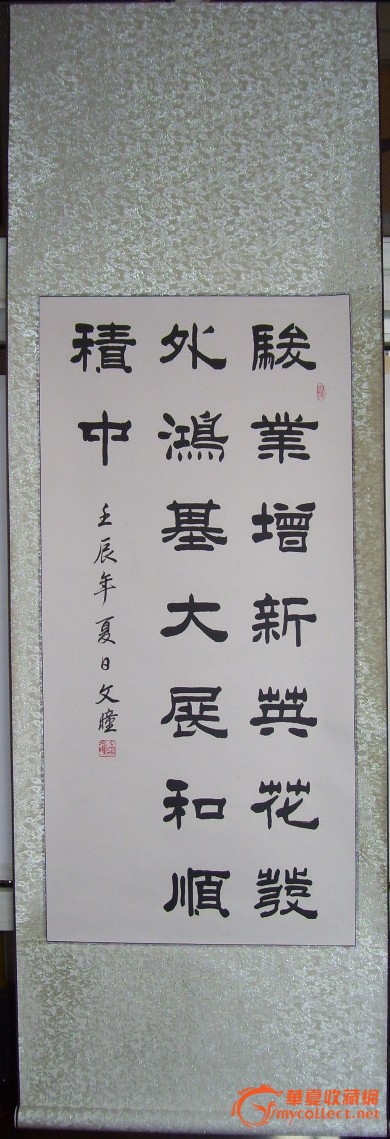 駿業增新英花發
外鴻基大展和順
積中
壬辰年夏日文瞳
華夏收藏網
mycollect.net